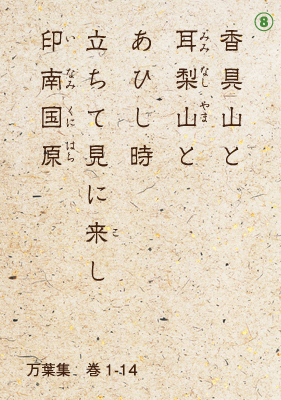 ⑧
香具山と
耳梨山と
みみなしやま
あひし時
立ちて見に来し
こ
印南国原
いなみくにはら
万葉集　巻1-14